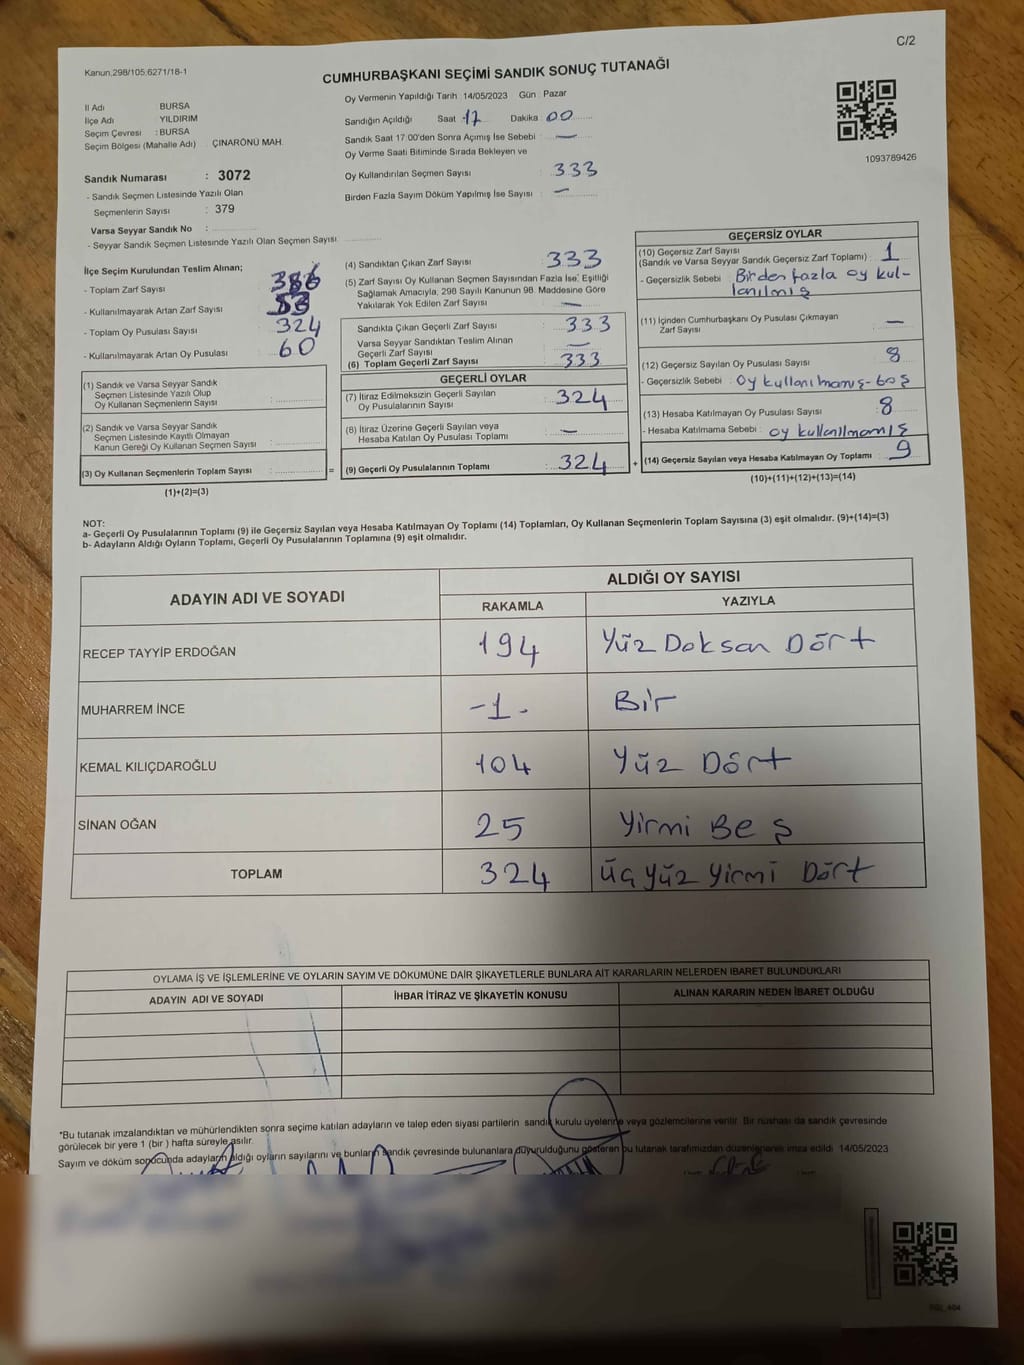 C/2
Kanun,298/105.6271/18-1
CUMHURBAŞKANI SEÇİMİ SANDIK SONUÇ TUTANAĞI
İl Adı BURSA
İlçe Adı YILDIRIM
Seçim Çevresi : BURSA
Seçim Bölgesi (Mahalle Adı) . ÇINARÖNÜ MAH.
Sandık Numarası : 3072
- Sandık Seçmen Listesinde Yazılı Olan
Seçmenlerin Sayısı : 379
Varsa Seyyar Sandık No :
- Seyyar Sandık Seçmen Listesinde Yazılı Olan Seçmen Sayısı
Oy Vermenin Yapıldığı Tarih :14/05/2023 Gün : Pazar
Sandığın Açıldığı Saat 17 Dakika 00
Sandık Saat 17:00'den Sonra Açımış İse Sebebi : —
Oy Verme Saati Bitiminde Sırada Bekleyen ve
Oy Kullandırılan Seçmen Sayısı : 333
Birden Fazla Sayım Döküm Yapılmış İse Sayısı : —
1093789426
İlçe Seçim Kurulundan Teslim Alınan;
- Toplam Zarf Sayısı :
- Kullanılmayarak Artan Zarf Sayısı :
- Toplam Oy Pusulası Sayısı : 324
- Kullanılmayarak Artan Oy Pusulası : 60
(1) Sandık ve Varsa Seyyar Sandık
Seçmen Listesinde Yazılı Olup
Oy Kullanan Seçmenlerin Sayısı :
(2) Sandık ve Varsa Seyyar Sandık
Seçmen Listesinde Kayıtlı Olmayan
Kanun Gereği Oy Kullanan Seçmen Sayısı :
(3) Oy Kullanan Seçmenlerin Toplam Sayısı : =
(1)+(2)=(3)
(4) Sandıktan Çıkan Zarf Sayısı : 333
(5) Zarf Sayısı Oy Kullanan Seçmen Sayısından Fazla İse; Eşitliği
Sağlamak Amacıyla, 298 Sayılı Kanunun 98. Maddesine Göre
Yakılarak Yok Edilen Zarf Sayısı : —
Sandıkta Çıkan Geçerli Zarf Sayısı : 333
Varsa Seyyar Sandıktan Teslim Alınan
Geçerli Zarf Sayısı : —
(6) Toplam Geçerli Zarf Sayısı : 333
GEÇERLİ OYLAR
(7) İtiraz Edilmeksizin Geçerli Sayılan
Oy Pusulalarının Sayısı : 324
(8) İtiraz Üzerine Geçerli Sayılan veya
Hesaba Katılan Oy Pusulası Toplamı : —
(9) Geçerli Oy Pusulalarının Toplamı : 324 +
GEÇERSİZ OYLAR
(10) Geçersiz Zarf Sayısı
(Sandık ve Varsa Seyyar Sandık Geçersiz Zarf Toplamı) : 1
- Geçersizlik Sebebi : Birden fazla oy kul-
lanılmış
(11) İçinden Cumhurbaşkanı Oy Pusulası Çıkmayan
Zarf Sayısı : —
(12) Geçersiz Sayılan Oy Pusulası Sayısı : 8
- Geçersizlik Sebebi : Oy kullanılmamış-boş
(13) Hesaba Katılmayan Oy Pusulası Sayısı : 8
- Hesaba Katılmama Sebebi : oy kullanılmamış
(14) Geçersiz Sayılan veya Hesaba Katılmayan Oy Toplamı : 9
(10)+(11)+(12)+(13)=(14)
NOT:
a- Geçerli Oy Pusulalarının Toplamı (9) ile Geçersiz Sayılan veya Hesaba Katılmayan Oy Toplamı (14) Toplamları, Oy Kullanan Seçmenlerin Toplam Sayısına (3) eşit olmalıdır. (9)+(14)=(3)
b- Adayların Aldığı Oyların Toplamı, Geçerli Oy Pusulalarının Toplamına (9) eşit olmalıdır.
ADAYIN ADI VE SOYADI
ALDIĞI OY SAYISI
RAKAMLA YAZIYLA
RECEP TAYYİP ERDOĞAN 194 Yüz Doksan Dört
MUHARREM İNCE -1- Bir
KEMAL KILIÇDAROĞLU 104 Yüz Dört
SİNAN OĞAN 25 Yirmi Beş
TOPLAM 324 Üç Yüz Yirmi Dört
OYLAMA İŞ VE İŞLEMLERİNE VE OYLARIN SAYIM VE DÖKÜMÜNE DAİR ŞİKAYETLERLE BUNLARA AİT KARARLARIN NELERDEN İBARET BULUNDUKLARI
ADAYIN ADI VE SOYADI İHBAR İTİRAZ VE ŞİKAYETİN KONUSU ALINAN KARARIN NEDEN İBARET OLDUĞU
*Bu tutanak imzalandıktan ve mühürlendikten sonra seçime katılan adayların ve talep eden siyasi partilerin sandık kurulu üyelerine veya gözlemcilerine verilir. Bir nüshası da sandık çevresinde
görülecek bir yere 1 (bir ) hafta süreyle asılır.
Sayım ve döküm sonucunda adayların aldığı oyların sayılarını ve bunların sandık çevresinde bulunanlara duyurulduğunu gösteren bu tutanak tarafımızdan düzenlenerek imza edildi 14/05/2023